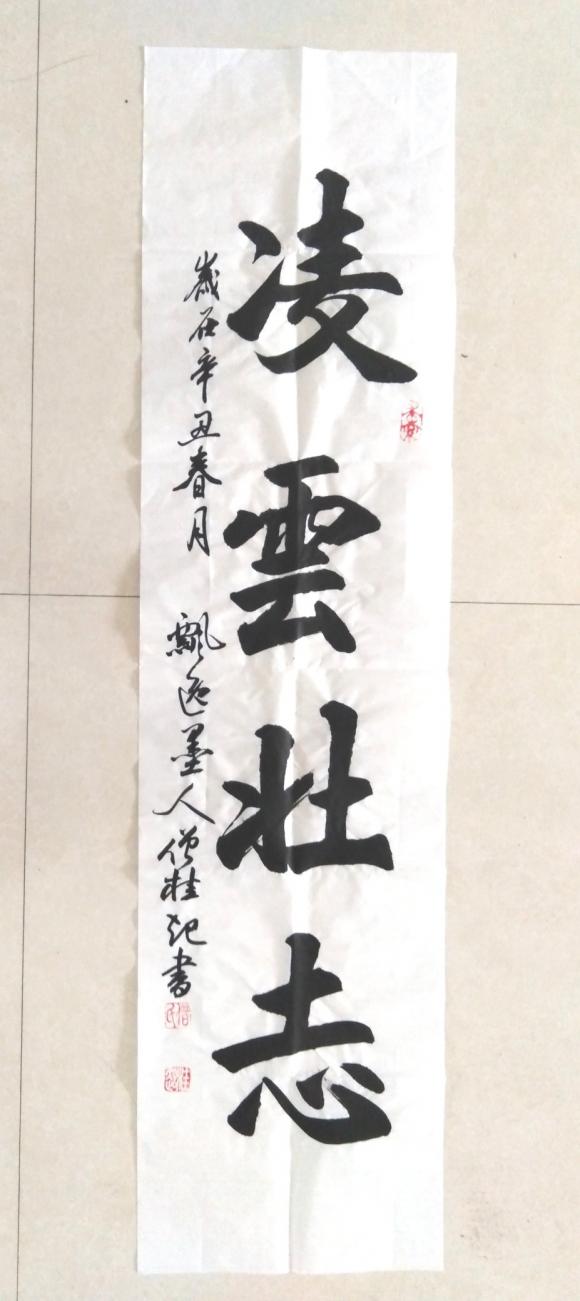 凌雲壯志
歲在辛丑春月 飄逸墨人僧桂記書